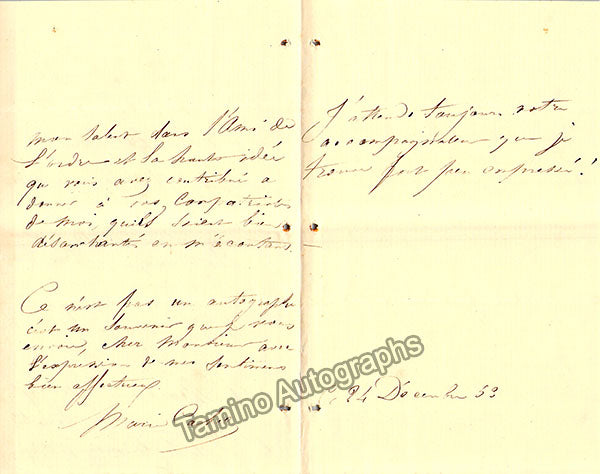 mon talent dans l'Ami de
l'ordre et la haute idée
que vous avez contribué a
donner à vos Compatriotes
de moi, qu'ils soient bien
désanchantés en m'écoutant.
Ce n'est pas un autographe
c'est un Souvenir que je vous
envoie, cher Monsieur avec
l'expression de mes sentimens
bien affectueux
Marie
J'attends toujours votre
accompagnateur que je
trouve fort peu empressé!
24 Décembre 53
Tamino Autographs